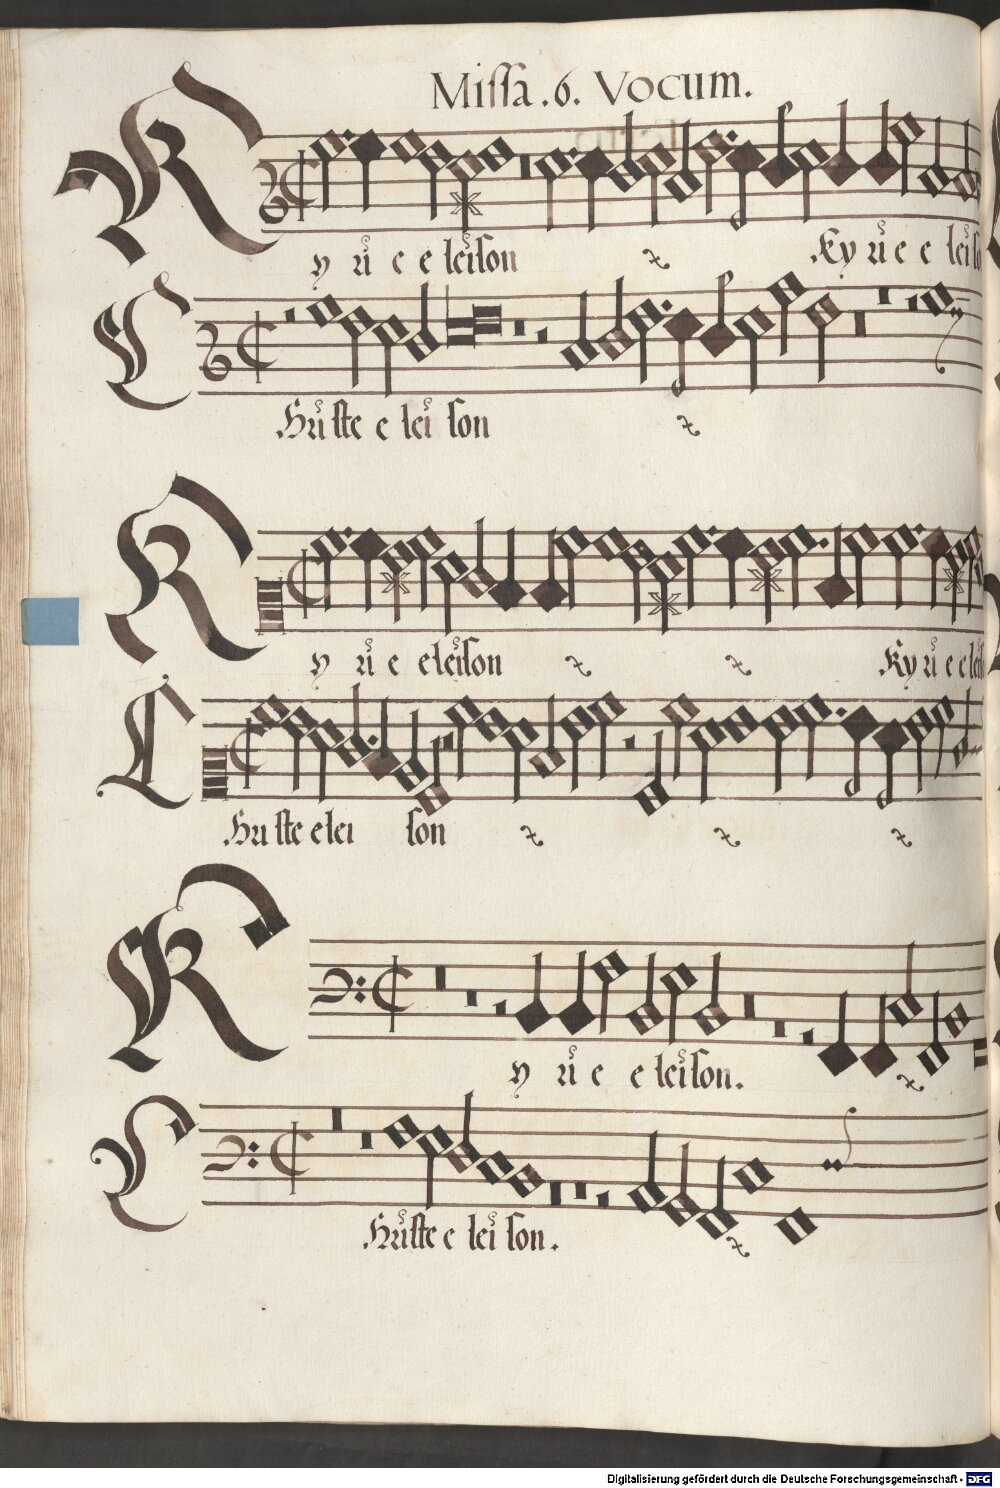 Missa .6. Vocum.
Ky rie e leison Ky rie e leiso
Christe e leison
Ky rie e eleison Ky rie e leis
Christe e lei son
Ky rie e leison.
Christe e lei son.
Digitalisierung gefördert durch die Deutsche Forschungsgemeinschaft - DFG